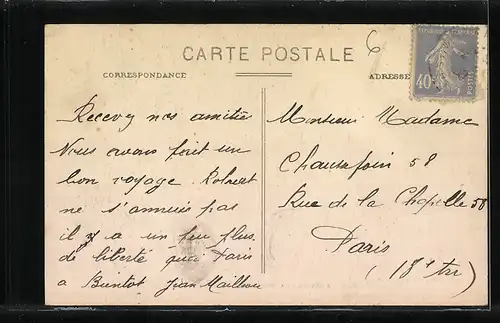 6
CARTE POSTALE
CORRESPONDANCE
ADRESSE
40c
POSTES
Recevez nos amitiés
Nous avons fait un
bon voyage. Robert
ne s'ennuie pas
il y a un peu plus
de liberté qu'a Paris
a Bientot Jean
Monsieur Madame
Chautefoin 58
Rue de la Chapelle 58
Paris
(18e arr)